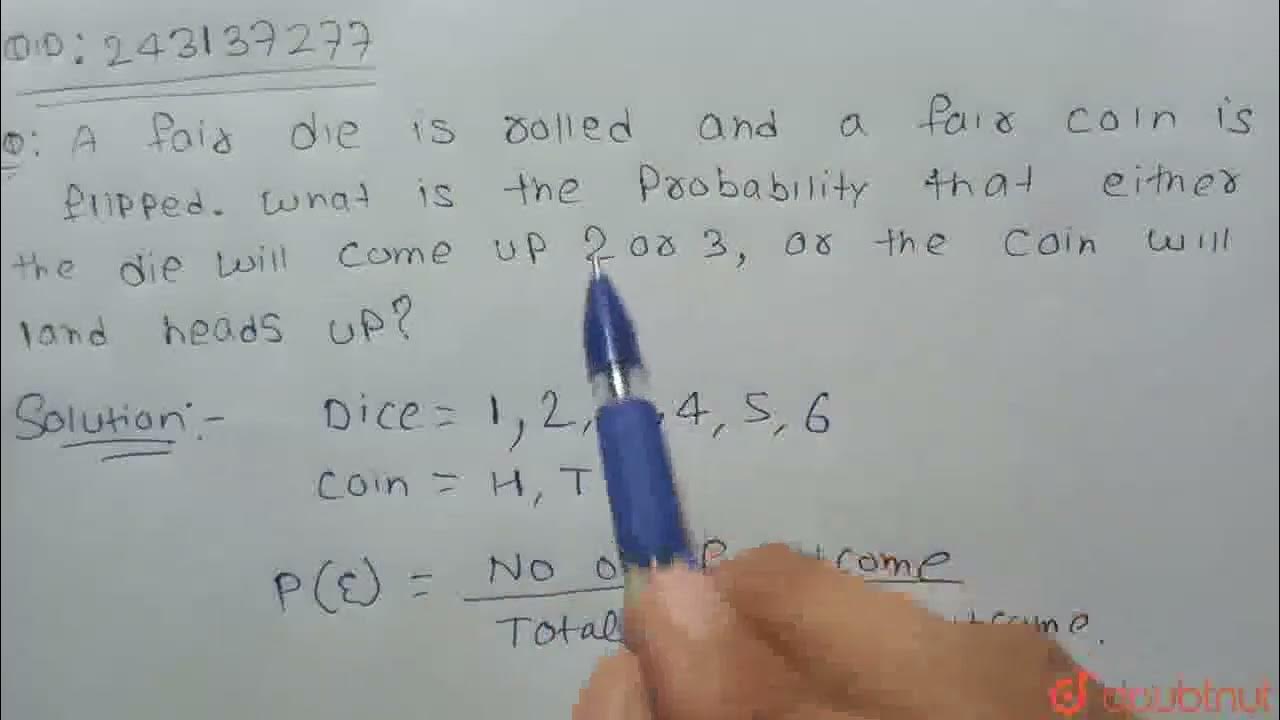 DID: 243137277
Q: A fair die is rolled and a fair coin is
flipped. What is the Probability that either
the die will come up 2 or 3, or the coin will
land heads up?
Solution:- Dice = 1, 2, 4, 5, 6
coin = H, T
P(E) = No
come
Total
doubtnut